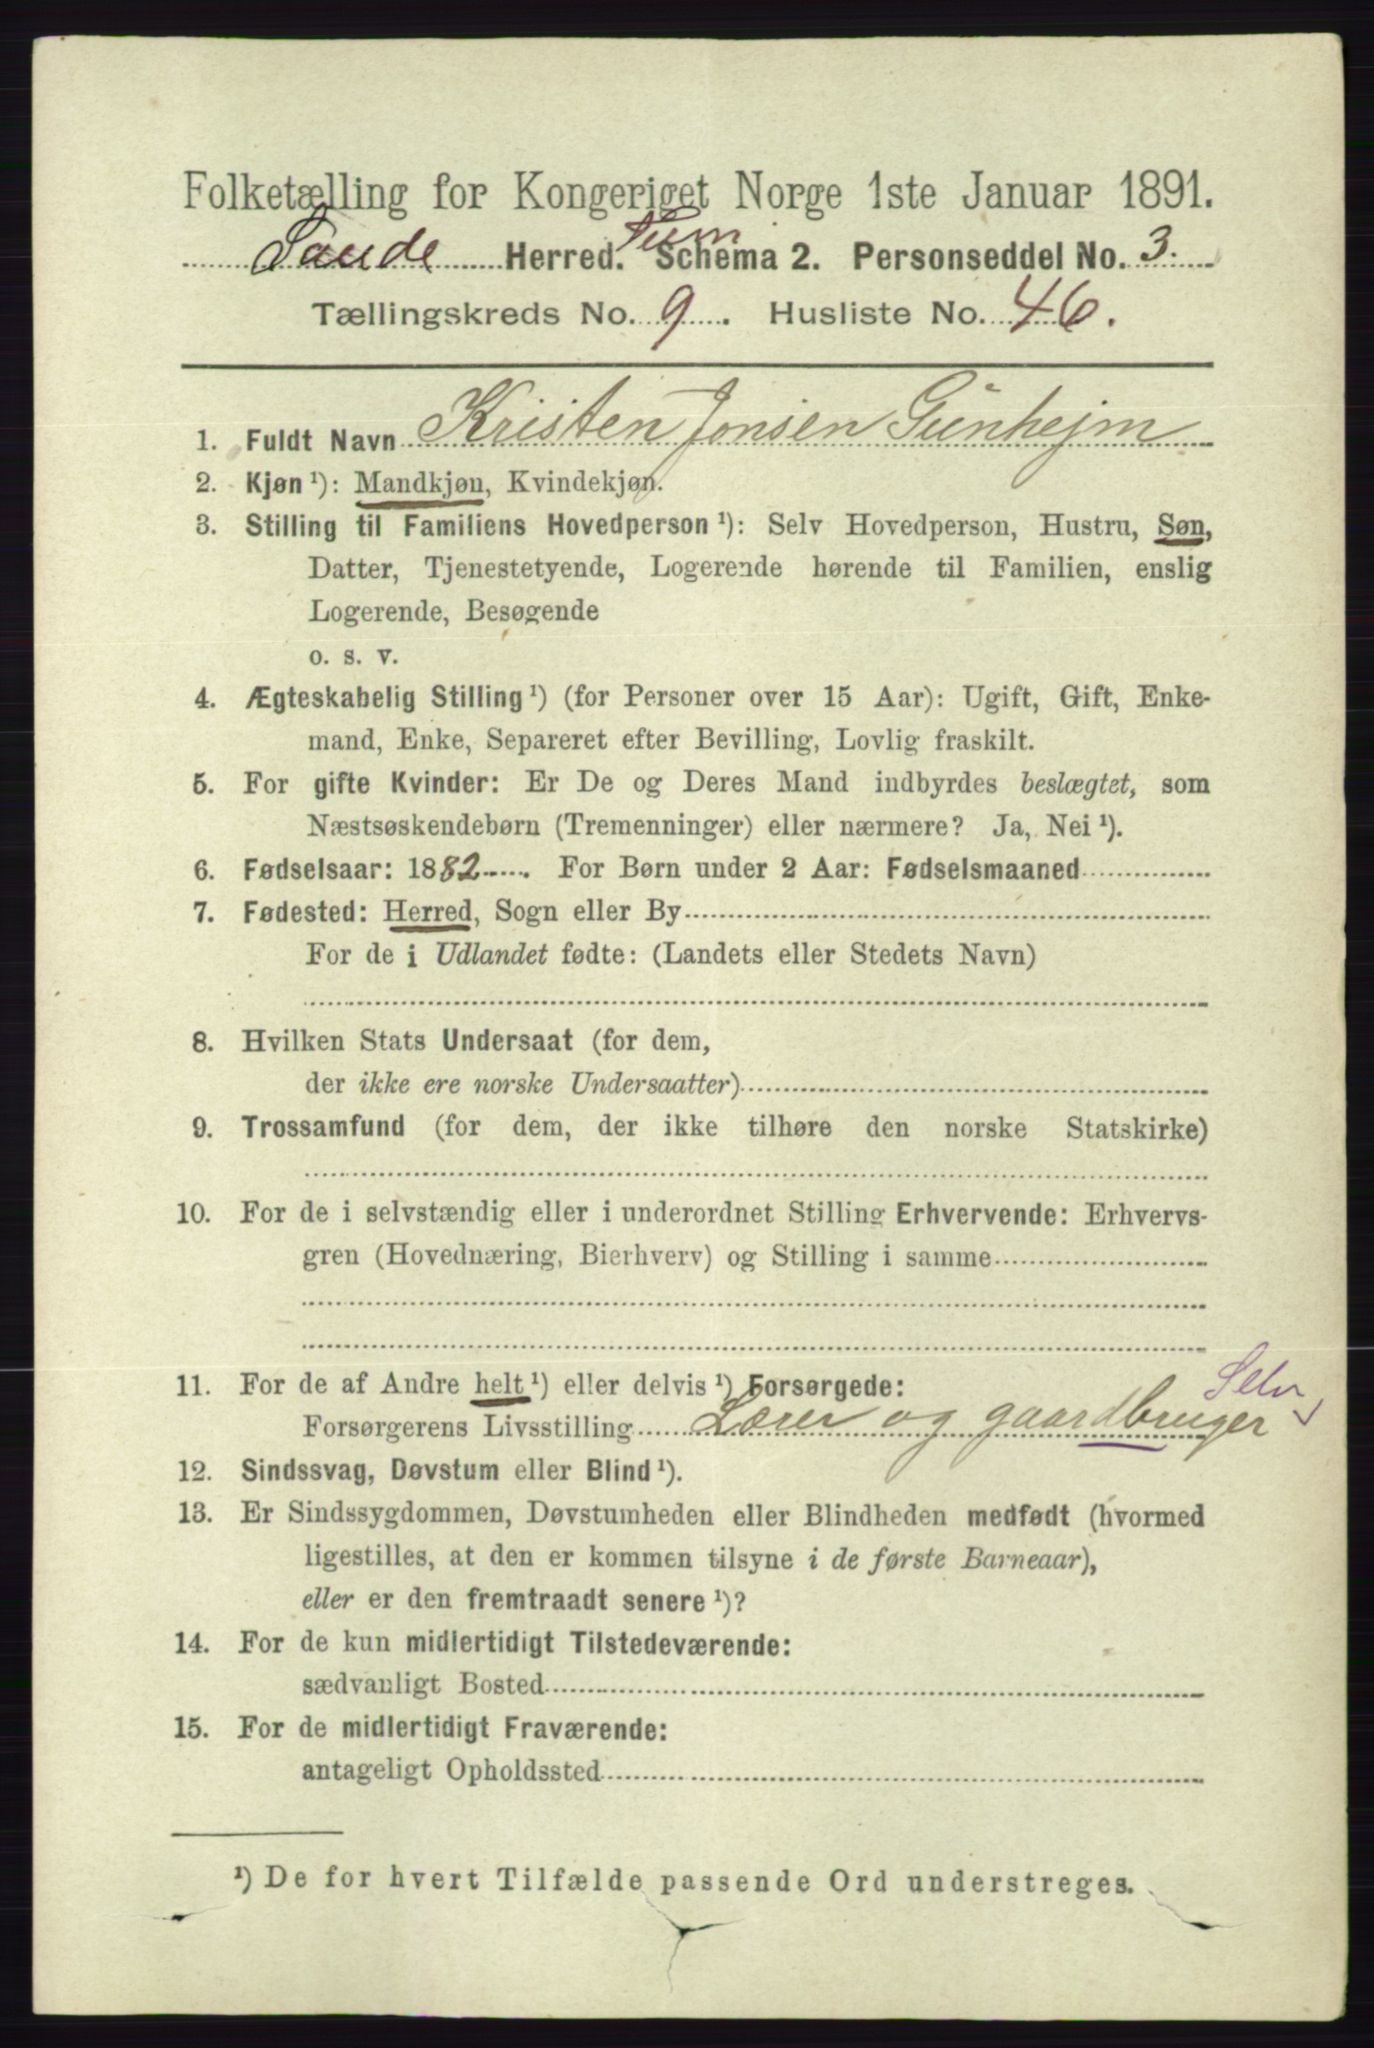 Folketælling for Kongeriget Norge 1ste Januar 1891.
Saude Herred. Schema 2. Personseddel No. 3.
Tællingskreds No. 9. Husliste No. 46.
1. Fuldt Navn Kristen Jonsen Gunhejm
2. Kjøn ¹): Mandkjøn, Kvindekjøn.
3. Stilling til Familiens Hovedperson ¹): Selv Hovedperson, Hustru, Søn,
Datter, Tjenestetyende, Logerende hørende til Familien, enslig
Logerende, Besøgende
o. s. v.
4. Ægteskabelig Stilling ¹) (for Personer over 15 Aar): Ugift, Gift, Enke-
mand, Enke, Separeret efter Bevilling, Lovlig fraskilt.
5. For gifte Kvinder: Er De og Deres Mand indbyrdes beslægtet, som
Næstsøskendebørn (Tremenninger) eller nærmere? Ja, Nei ¹).
6. Fødselsaar: 1882. For Børn under 2 Aar: Fødselsmaaned
7. Fødested: Herred, Sogn eller By
For de i Udlandet fødte: (Landets eller Stedets Navn)
8. Hvilken Stats Undersaat (for dem,
der ikke ere norske Undersaatter)
9. Trossamfund (for dem, der ikke tilhøre den norske Statskirke)
10. For de i selvstændig eller i underordnet Stilling Erhvervende: Erhvervs-
gren (Hovednæring, Bierhverv) og Stilling i samme
Selv
11. For de af Andre helt ¹) eller delvis ¹) Forsørgede:
Forsørgerens Livsstilling Lærer og gaardbruger
12. Sindssvag, Døvstum eller Blind ¹).
13. Er Sindssygdommen, Døvstumheden eller Blindheden medfødt (hvormed
ligestilles, at den er kommen tilsyne i de første Barneaar),
eller er den fremtraadt senere ¹)?
14. For de kun midlertidigt Tilstedeværende:
sædvanligt Bosted
15. For de midlertidigt Fraværende:
antageligt Opholdssted
¹) De for hvert Tilfælde passende Ord understreges.